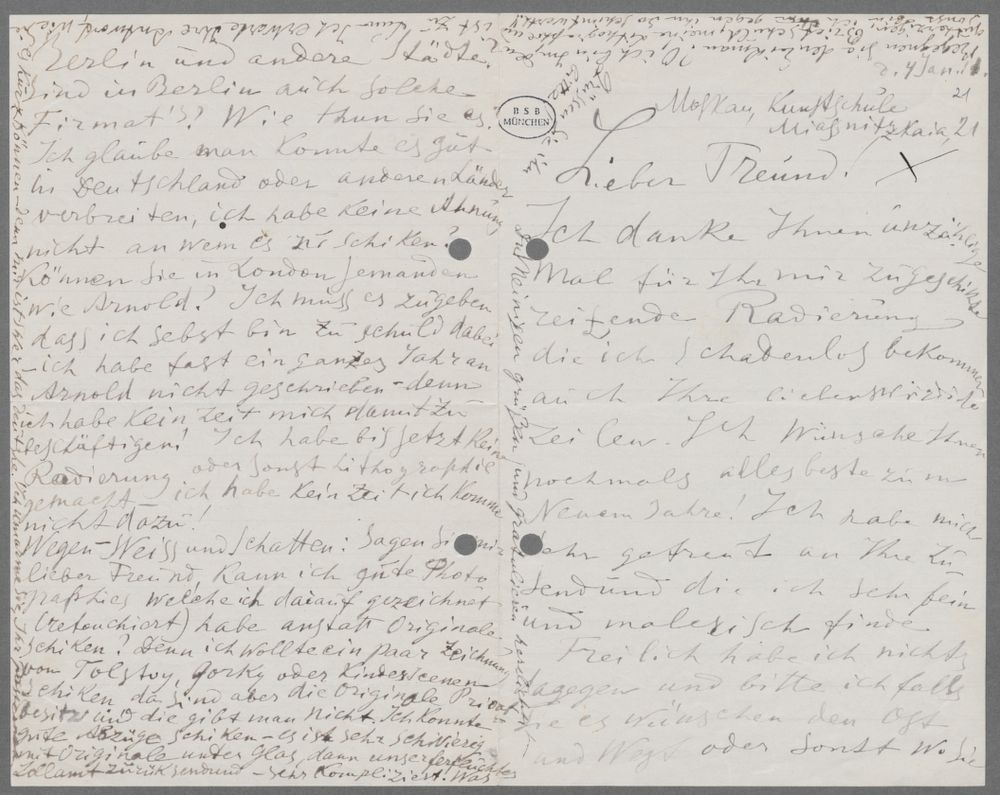 d. 4 Jan. 11.
21
Moskau, Kunstschule
Miassnitzkaia, 21
Lieber Freund!
Ich danke Ihnen unzählige
Mal für Ihr mir zugeschikte
reizende Radierung
die ich schadenlos bekommen
auch Ihre liebenswürdige
Zeilen. Ich wünsche Ihnen
nochmals alles beste zum
Neuem Jahre! Ich habe mich
sehr gefreut an Ihre Zu
sendund die ich sehr fein
und malerisch finde
Freilich habe ich nichts
dagegen und bitte ich falls
Sie es wünschen den Ost
und West oder sonst wo Sie
BSB
MÜNCHEN
Berlin und andere Städte.
Sind in Berlin auch solche
Firmat's? Wie thun Sie es.
Ich glaube man konnte es gut
in Deutschland oder anderen Länder
verbreiten, ich habe keine Ahnung
nicht an wem es zu schiken?
Können Sie in London jemanden
wie Arnold? Ich muss es zugeben
dass ich sebst bin zu schuld dabei
– ich habe fast ein ganzes Jahr an
Arnold nicht geschrieben – denn
ich habe kein Zeit mich damit zu
beschäftigen! Ich habe bis jetzt keine
Radierung oder sonst Lithographie
gemacht – ich habe kein Zeit ich komme
nicht dazu!
Wegen – Weiss und Schatten: Sagen Sie mir
lieber Freund, kann ich gute Photo
graphies welche ich darauf gezeichnet
(retouchiert) habe anstatt Originale
schiken? Denn ich wollte ein paar Zeichnung
von Tolstoy, Gorky oder Kinderscenen
schiken da sind aber die Originale Privat
besitz und die gibt man nicht. Ich konnte
gute Abzüge schiken – es ist sehr schwierig
mit Originale unter Glas, dann unser verfluchtes
Zollamt zurüksendund – sehr kompliziert. Was